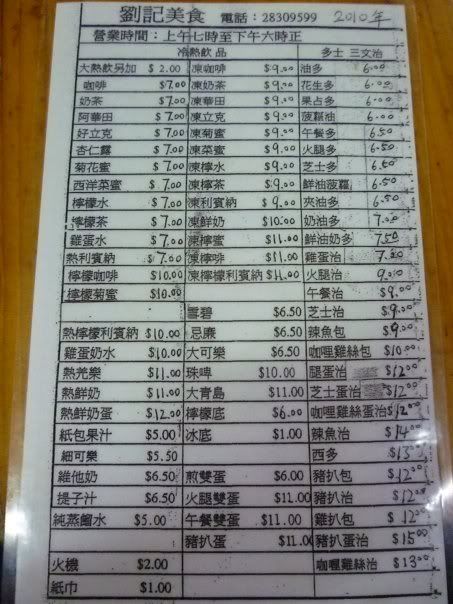 劉記美食 電話：28309599 2010年
營業時間：上午七時至下午六時正
冷熱飲品 多士 三文治
大熱飲另加 $2.00 凍咖啡 $9.00 油多 6.00
咖啡 $7.00 凍奶茶 $9.00 花生多 6.00
奶茶 $7.00 凍華田 $9.00 果占多 6.00
阿華田 $7.00 凍立克 $9.00 菠蘿油 6.00
好立克 $7.00 凍菊蜜 $9.00 午餐多 6.50
杏仁露 $7.00 凍菜蜜 $9.00 火腿多 6.50
菊花蜜 $7.00 凍檸水 $9.00 芝士多 6.50
西洋菜蜜 $7.00 凍檸茶 $9.00 鮮油菠蘿 6.50
檸檬水 $7.00 凍利賓納 $9.00 夾油多 6.50
檸檬茶 $7.00 凍鮮奶 $10.00 奶油多 7.00
雞蛋水 $7.00 凍檸蜜 $11.00 鮮油奶多 7.50
熱利賓納 $7.00 凍檸啡 $11.00 雞蛋治 7.00
檸檬咖啡 $10.00 凍檸檬利賓納 $11.00 火腿治 9.00
檸檬菊蜜 $10.00 午餐治 $9.00
雪碧 $6.50 芝士治 $9.00
熱檸檬利賓納 $10.00 忌廉 $6.50 辣魚包 $9.00
雞蛋奶水 $10.00 大可樂 $6.50 咖哩雞絲包 $10.00
熱羌樂 $11.00 珠啤 $10.00 腿蛋治 $12.00
熱鮮奶 $11.00 大青島 $11.00 芝士蛋治 $12.00
熱鮮奶蛋 $12.00 檸檬底 $6.00 咖哩雞絲蛋治 $12.00
紙包果汁 $5.00 冰底 $1.00 辣魚治 $14.00
細可樂 $5.50 西多 $13.00
維他奶 $6.50 煎雙蛋 $6.00 豬扒包 $12.00
提子汁 $6.50 火腿雙蛋 $11.00 豬扒治 $12.00
純蒸餾水 $5.00 午餐雙蛋 $11.00 雞扒包 $12.00
豬扒蛋 $11.00 豬扒蛋治 $15.00
火機 $2.00 咖哩雞絲治 $13.00
紙巾 $1.00